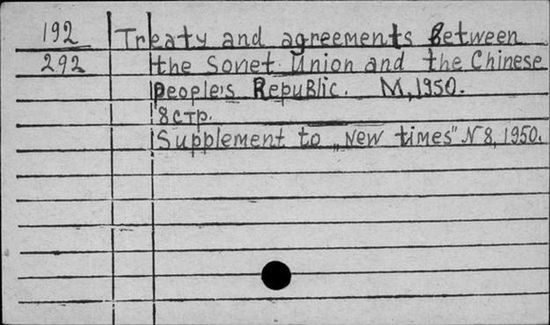 192 Treaty and agreements between
292 the Soviet Union and the Chinese
People's Republic. M, 1950.
8 стр.
Supplement to „New times" N 8, 1950.